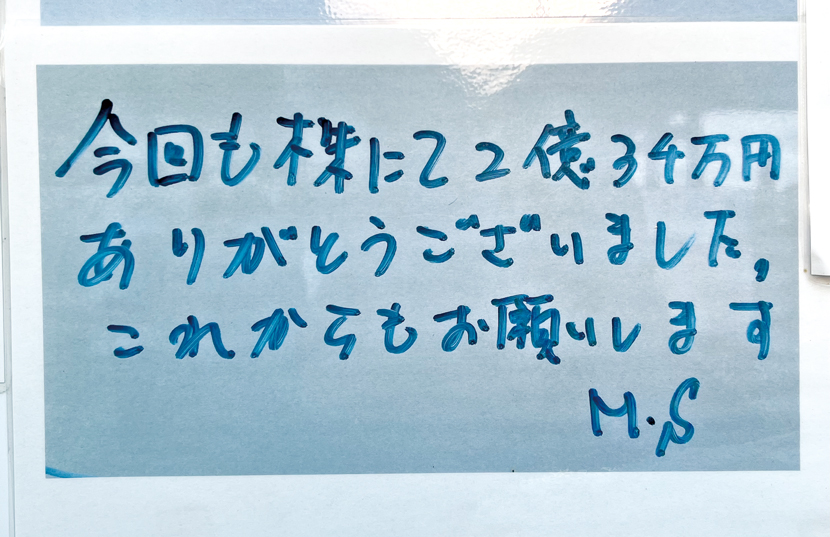 今回も株にて2億34万円
ありがとうございました,
これからもお願いします
M.S